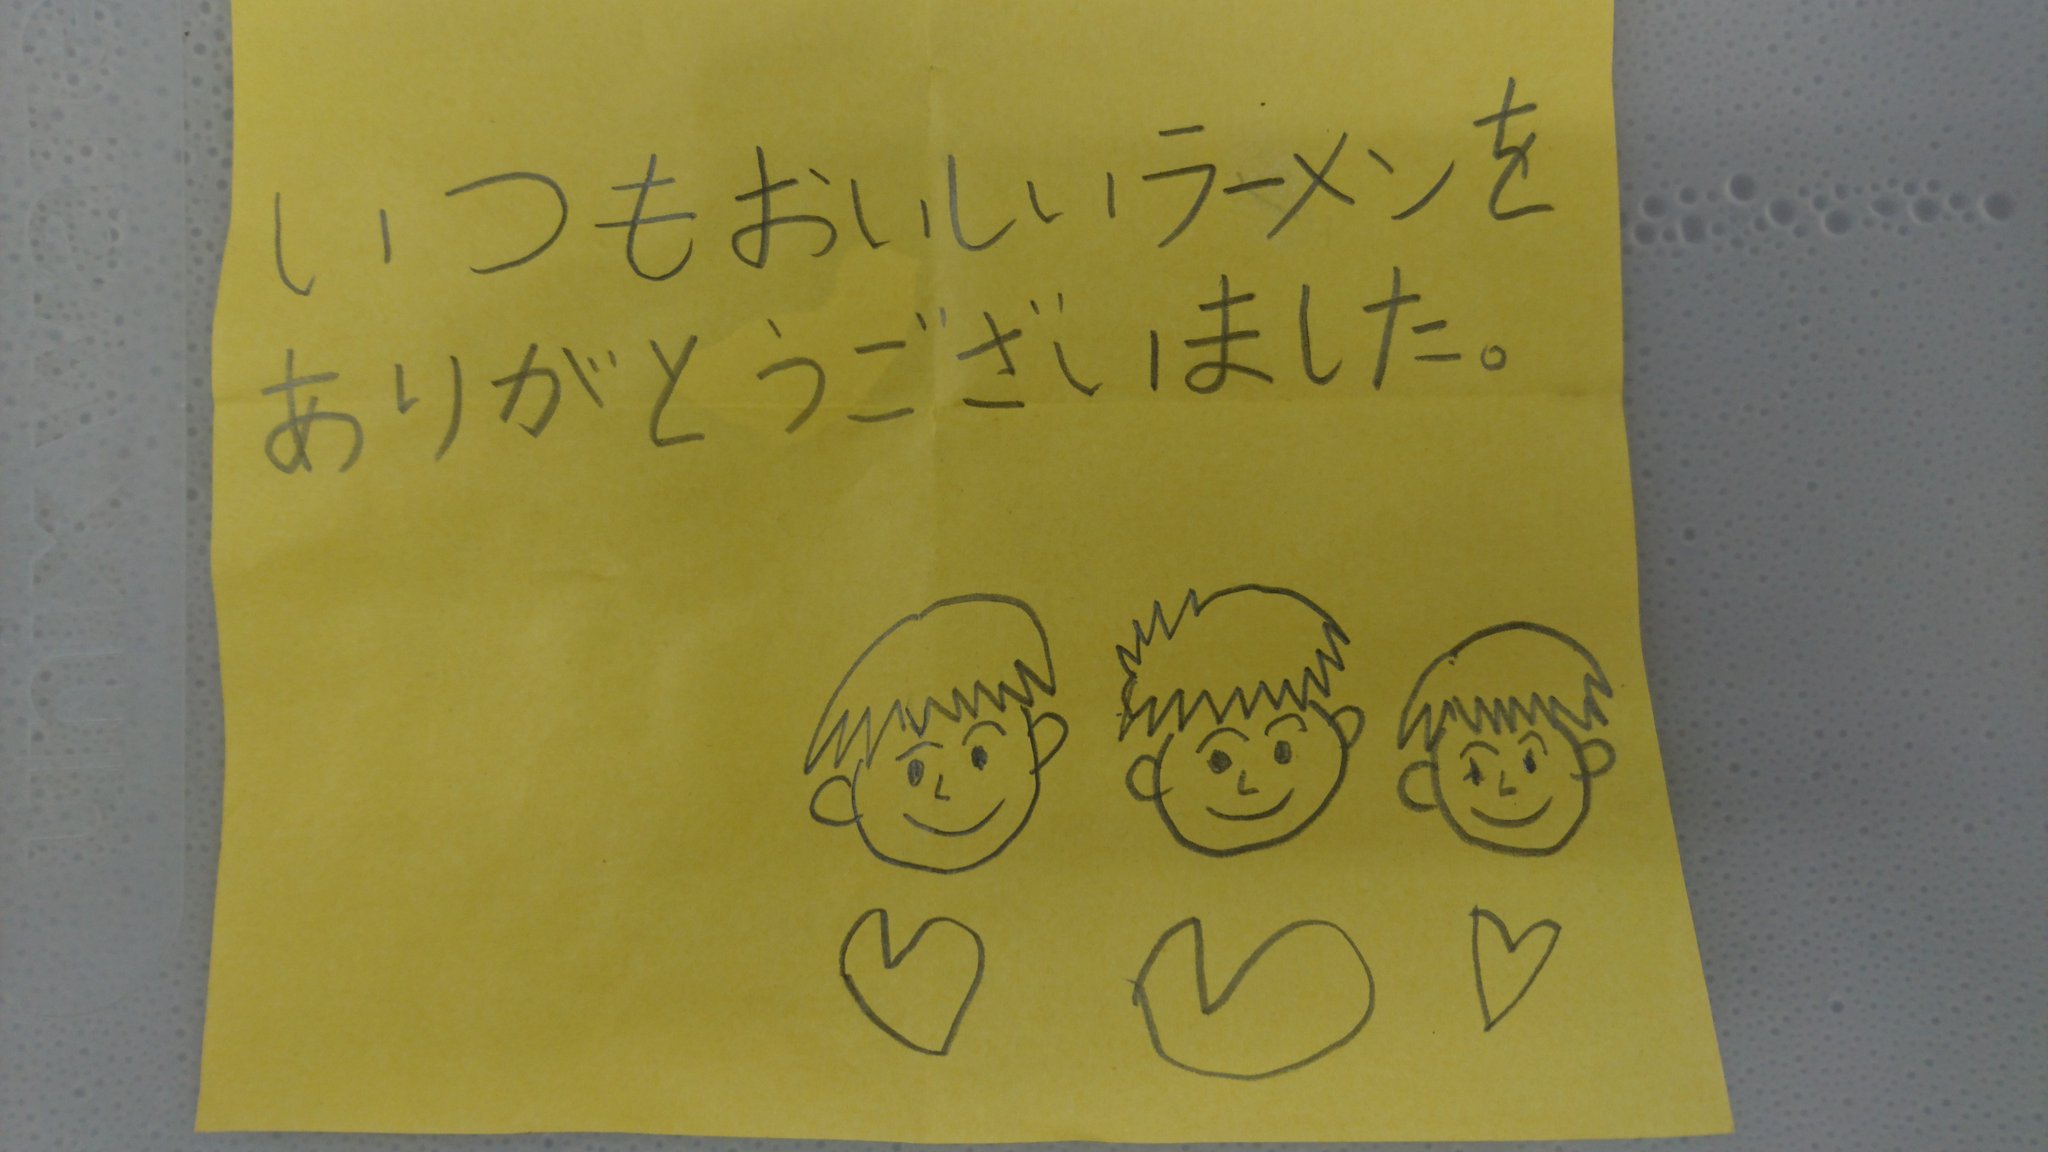 いつもおいしいラーメンを
ありがとうございました。